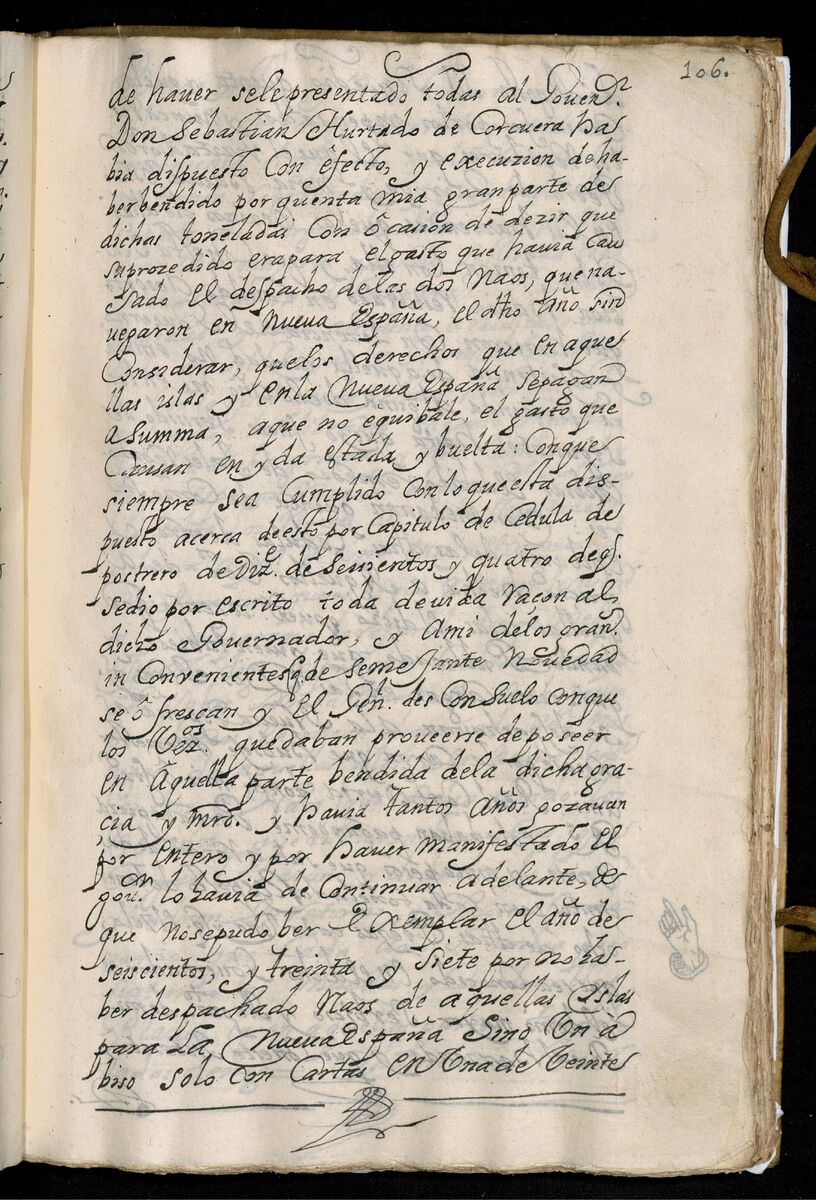 106.
de haver sele presentado todas al Goven.r
Don Sebastian Hurtado de Corcuera ha
bia dispuesto Con êfecto, y execuzion de ha-
ber bendido por quenta mia gran parte de
dichas toneladas Con ôcasion de dezir que
su prozedido era para el gasto que havia Cau
sado El despacho de las dos Naos, que na-
vegaron en Nueva España, el dho año sin
Considerar, que los derechos que en aque
llas islas y en la Nueva España se pagan
a summa, a que no equibale, el gasto que
Causan en yda estada y buelta: Conque
siempre sea Cumplido con lo que esta dis-
puesto acerca de esto por Capitulo de Cedula de
postrero de Diz.e de seicientos y quatro de q.
se dio por escrito toda devida raçon al
dicho Governador, y Ami de los gran.
in Convenientes q de seme Jante Novedad
se ôfrescan y El Gen.l des Con suelo con que
los Vez.os quedaban proveerse de poseer
en aquella parte bendida de la dicha gra-
çia y mrd. y havia tantos Años gozavan
por Entero y por haver manifestado El
gov.or lo havia de Continuar adelante, de
que no se pudo ber Exemplar El año de
seiscientos, y treinta y Siete por no ha-
ber despachado Naos de aquellas Islas
para La Nueva España Sino Vn à
biso solo con Cartas En Vna de Veinte